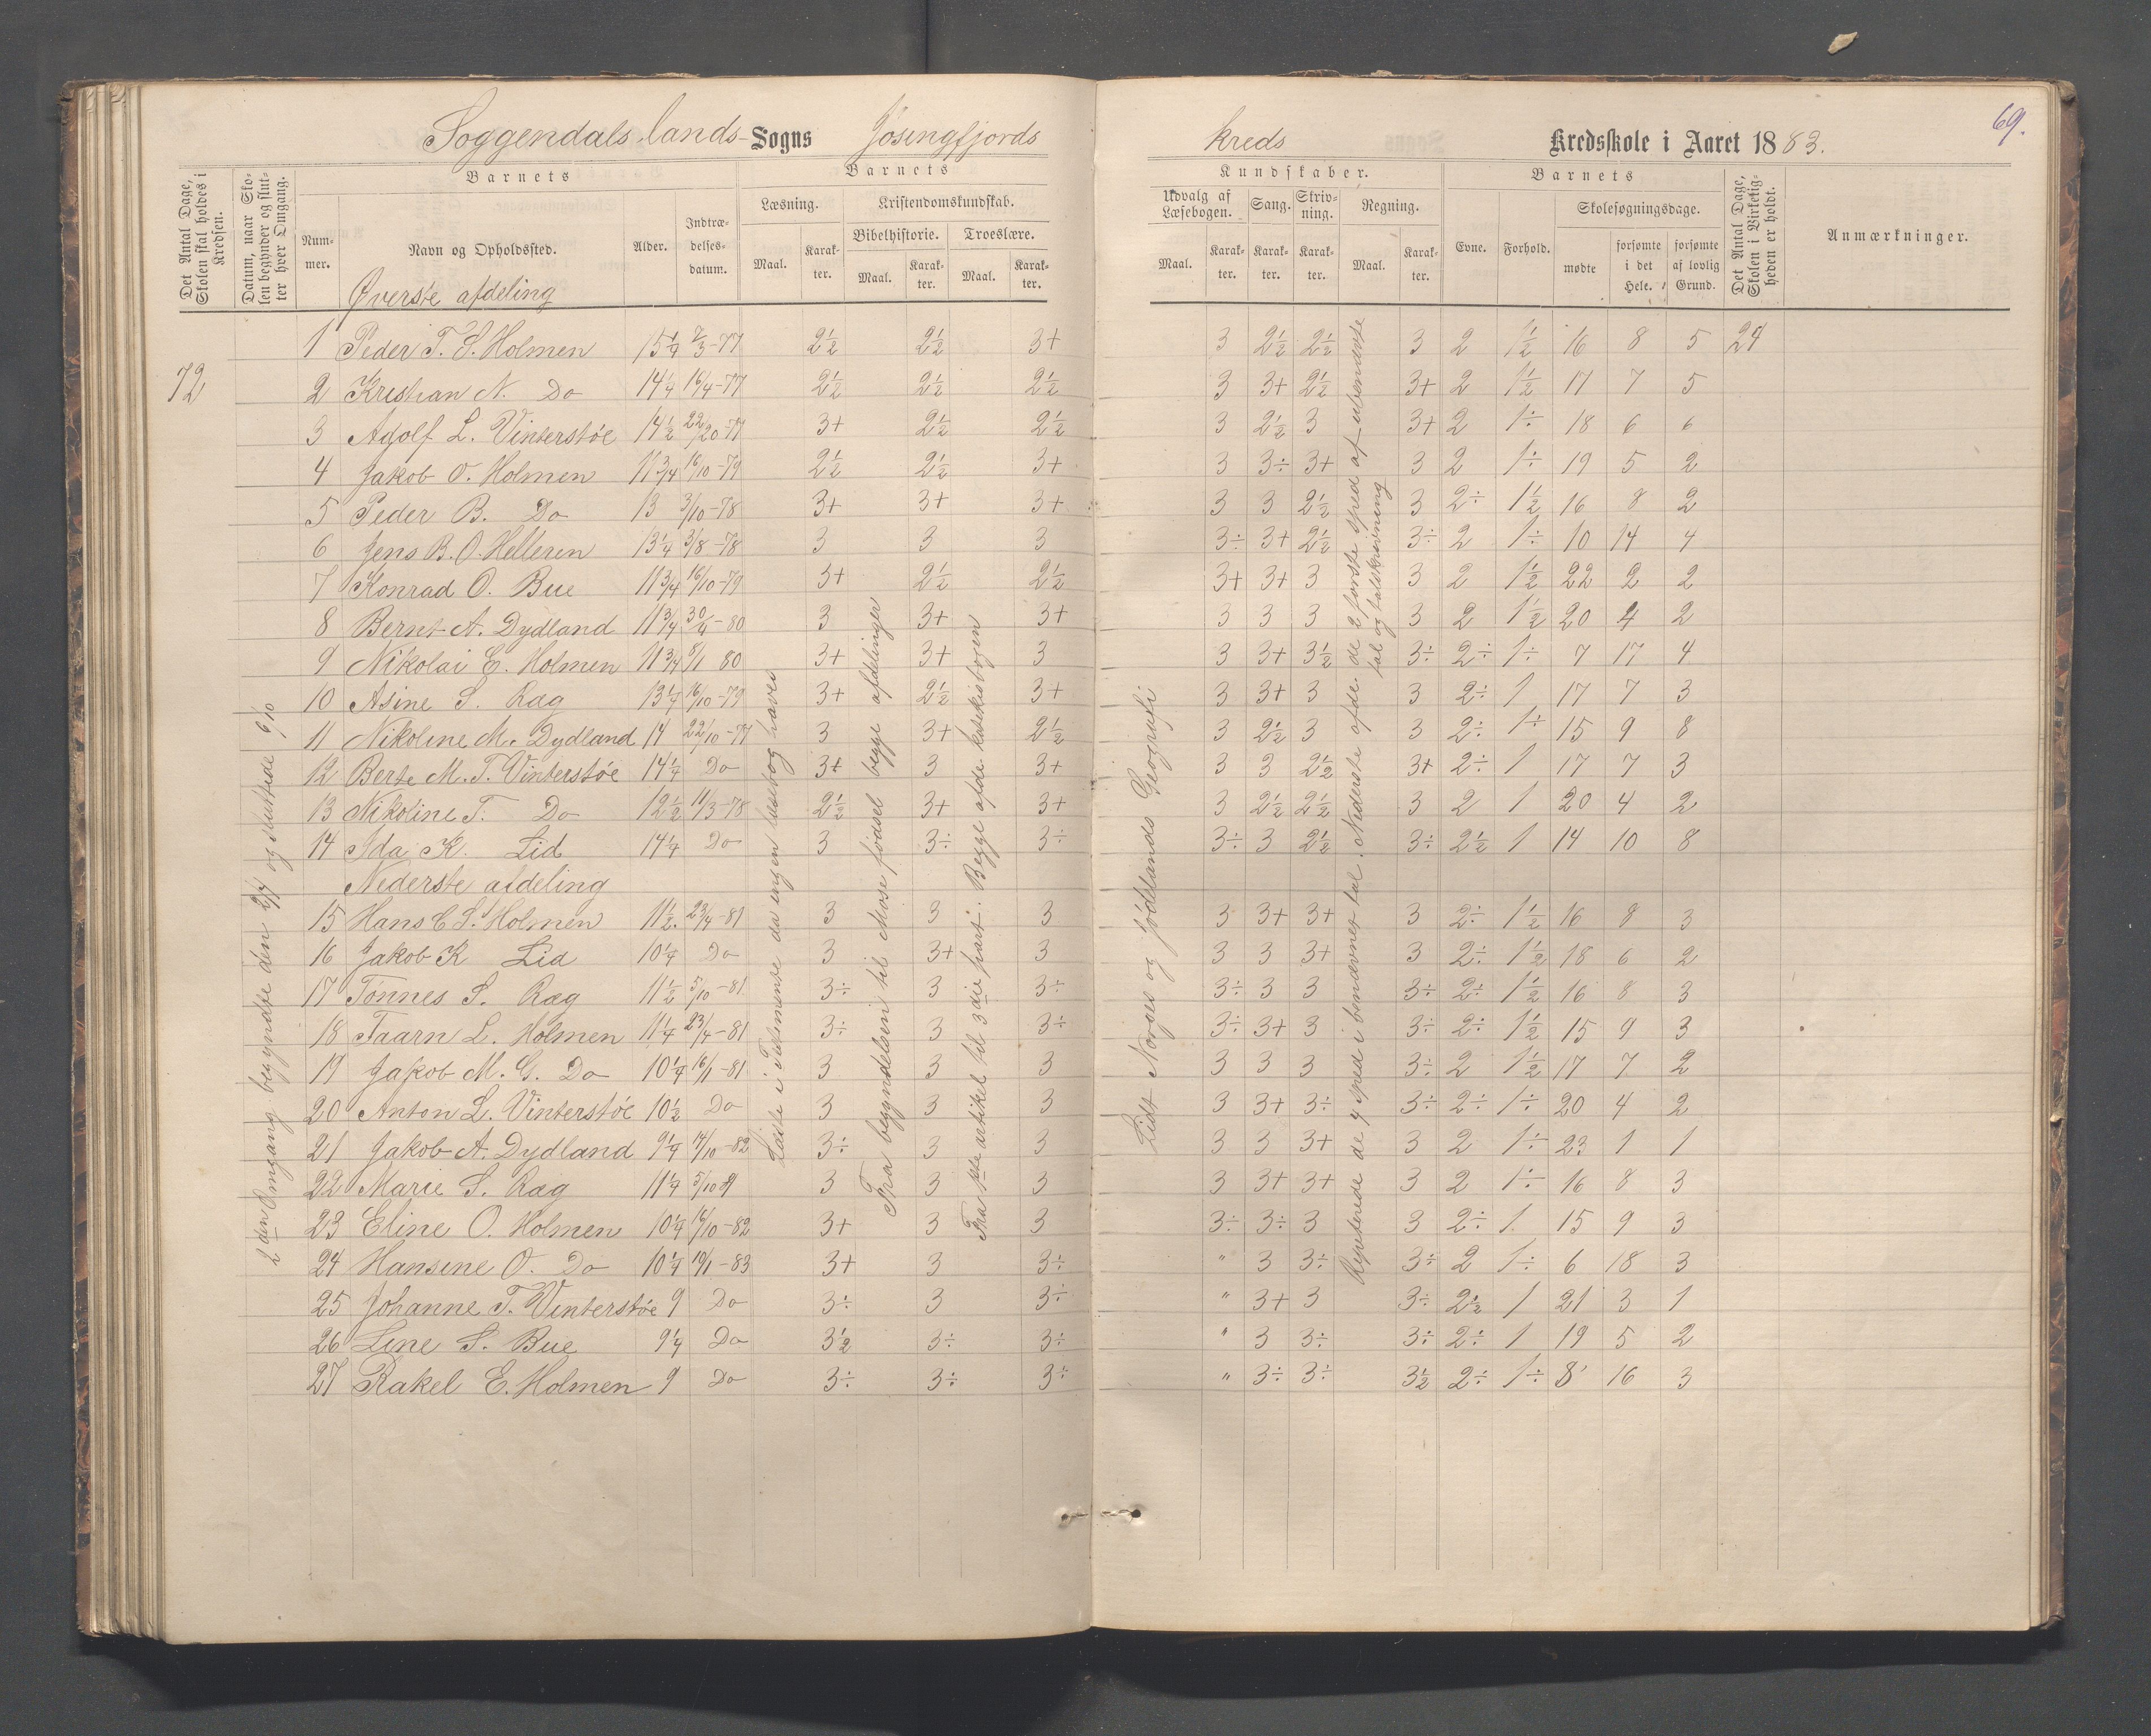 69.
Soggendals lands- Sogns Jøsingfjords kreds Kredsskole i Aaret 1883.
Det Antal Dage, Skolen skal holdes i Kredsen.
Datum, naar Skolen begynder og slutter hver Omgang.
Barnets
Nummer.
Navn og Opholdssted.
Alder.
Indtrædelsesdatum.
Barnets
Læsning.
Maal.
Karakter.
Kristendomskundskab.
Bibelhistorie.
Maal.
Karakter.
Troeslære.
Maal.
Karakter.
Kundskaber.
Udvalg af Læsebogen.
Maal.
Karakter.
Sang.
Karakter.
Skrivning.
Karakter.
Regning.
Maal.
Karakter.
Barnets
Evne.
Forhold.
Skolesøgningsdage.
mødte
forsømte i det Hele.
forsømte af lovlig Grund.
Det Antal Dage, Skolen i Virkeligheden er holdt.
Anmærkninger.
72
2den Omgang begyndte den 2/7 og sluttede 6/10
Øverste afdeling
1 Peder T. S. Holmen 15 1/4 7/3-77 2 1/2 2 1/2 3+ 3 2 1/2 2 1/2 3 2 1 1/2 16 8 5 24
2 Kristian N. Do 14 1/4 16/4-77 2 1/2 2 1/2 2 1/2 3 3+ 2 1/2 3+ 2 1 1/2 17 7 5
3 Adolf L. Vinterstøe 14 1/2 3+ 2 1/2 2 1/2 3 2 1/2 3 3+ 2 1÷ 18 6 6
4 Jakob O. Holmen 11 3/4 16/10-79 2 1/2 2 1/2 3+ 3 3÷ 3+ 3 2 1÷ 19 5 2
5 Peder B. Do 13 3/10-78 3+ 3+ 3+ 3 3 2 1/2 3 2÷ 1 1/2 16 8 2
6 Jens B. O. Helleren 13 1/4 3/8-78 3 3 3 3÷ 3+ 2 1/2 3÷ 2 1÷ 10 14 4
7 Konrad O. Bue 11 3/4 16/10-79 3+ 2 1/2 2 1/2 3+ 3+ 3 3 2 1 1/2 22 2 2
8 Bernt A. Dydland 11 3/4 30/4-80 3 3+ 3+ 3 3 3 3 2 1 1/2 20 4 2
9 Nikolai E. Holmen 11 3/4 8/1 80 3+ 3+ 3 3 3+ 3 1/2 3÷ 2÷ 1÷ 7 17 4
10 Asine S. Ræg 13 1/4 16/10-79 3+ 2 1/2 3+ 3 3+ 3 3 2÷ 1 17 7 3
11 Nikoline M. Dydland 14 22/10-77 3 3+ 2 1/2 3 2 1/2 3 3 2÷ 1÷ 15 9 8
12 Berte M. T. Vinterstøe 14 1/4 Do 3+ 3 3+ 3 3 2 1/2 3+ 2÷ 1 17 7 3
13 Nikoline T. Do 12 1/2 11/3-78 2 1/2 3+ 3+ 3 2 1/2 2 1/2 3 2 1 20 4 2
14 Ida K. Lid 14 1/4 Do 3 3÷ 3÷ 3÷ 3 2 1/2 3÷ 2 1/2 1 14 10 8
Nederste afdeling
15 Hans C S. Holmen 11 1/2. 23/4-81 3 3 3 3 3+ 3+ 3 2÷ 1 1/2 16 8 3
16 Jakob K Lid 10 1/4 Do 3 3+ 3 3 3 3+ 3 2÷ 1 1/2 18 6 2
17 Tønnes S. Ræg 11 1/2 5/10-81 3÷ 3 3÷ 3÷ 3 3 3÷ 2÷ 1 1/2 16 8 3
18 Taarn L. Holmen 11 1/4 23/4-81 3÷ 3 3÷ 3÷ 3+ 3 3÷ 2÷ 1 1/2 15 9 3
19 Jakob M. G. Do 10 1/4 16/1-81 3 3 3 3 3 3 3÷ 2 1 1/2 17 7 2
20 Anton L. Vinterstøe 10 1/2 Do 3 3 3 3 3+ 3÷ 3÷ 2÷ 1÷ 20 4 2
21 Jakob A. Dydland 9 1/4 14/10-82 3÷ 3 3 3 3 3+ 3 2 1÷ 23 1 1
22 Marie S. Ræg 11 1/4 3 3 3 3 3+ 3+ 3 2 1÷ 16 8 3
23 Eline O. Holmen 10 1/4 16/10-82 3+ 3 3 3÷ 3÷ 3 3 2÷ 1. 15 9 3
24 Hansine O. Do 10 1/4 10/1-83 3+ 3 3÷ " 3 3÷ 3÷ 2 1÷ 6 18 3
25 Johanne T. Vinterstøe 9 Do 3÷ 3 3÷ " 3+ 3 3÷ 2 1/2 1 21 3 1
26 Line S. Bue 9 1/4 Do 3 1/2 3÷ 3÷ " 3 3÷ 3÷ 2÷ 1 19 5 2
27 Rakel E. Holmen 9 Do 3÷ 3÷ 3÷ " 3÷ 3÷ 3 1/2 2÷ 1÷ 8 16 3
Læste i Testamente da ingen læsebog haves
Fra begyndelsen til Mose fødsel begge afdelinger
Fra 1ste artikel til 3die part. Begge afde. katekisbogen
Lidt Norges og Jødelands Geografi
Repeterede de 4 sped i benævnes tal. Nederste afde. de 2 første sped af ubenævte tal og talskrivning